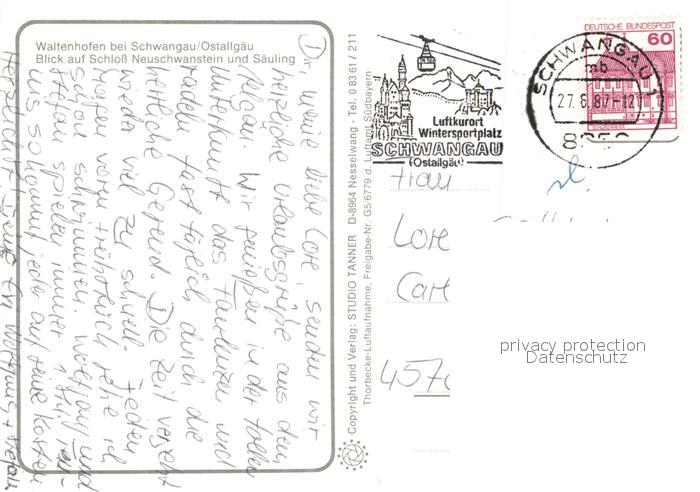 Waltenhofen bei Schwangau/Ostallgäu
Blick auf Schloß Neuschwanstein und Säuling
Dir, meine liebe Lore, senden wir
herzliche Urlaubsgrüße aus dem
Allgäu. Wir genießen in der tollen
Unterkunft das Faulenzen und
radeln fast täglich durch die
herrliche Gegend. Die Zeit vergeht
wieder viel zu schnell. Jeden
Morgen vorm Frühstück gehe ich
schon schwimmen. Wolfgang und
Stefan spielen immer
so kommt jeder auf seine Kosten.
Herzlichst Deine
Copyright und Verlag: STUDIO TANNER D-8964 Nesselwang - Tel. 08361/211
Thorbecke-Luftaufnahme, Freigabe-Nr. G5/6779 d. Luftamt Südbayern
Luftkurort
Wintersportplatz
SCHWANGAU
(Ostallgäu)
DEUTSCHE BUNDESPOST
60
SCHWANGAU 1
mb
27.6.87-12
Frau
Lore
457
privacy protection
Datenschutz